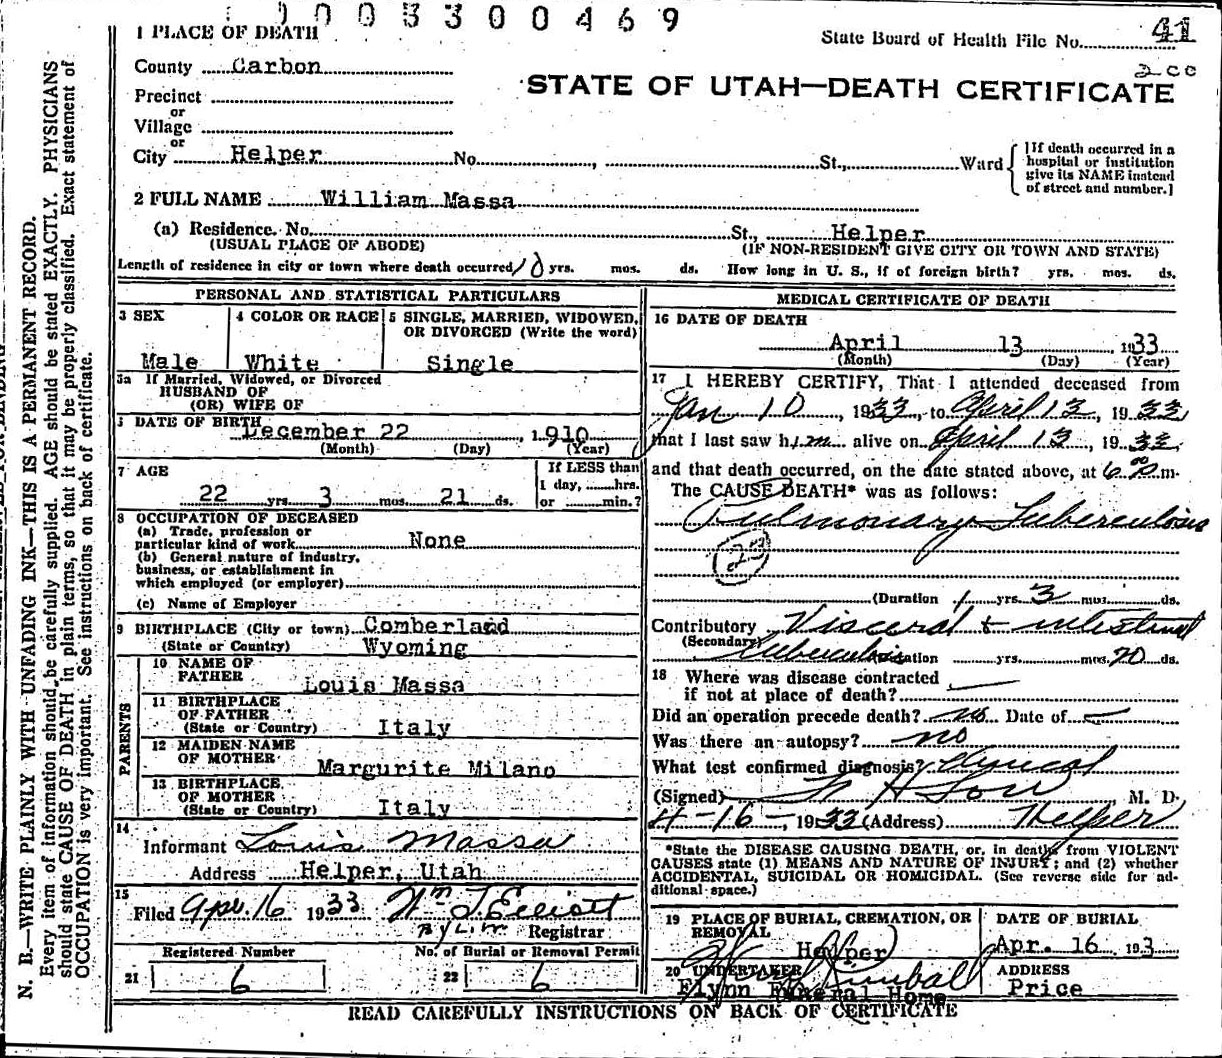 1003300469
1 PLACE OF DEATH
State Board of Health File No. 41
200
County Carbon
STATE OF UTAH—DEATH CERTIFICATE
Precinct
or
Village
or
City Helper No. , St., Ward
[If death occurred in a hospital or institution give its NAME instead of street and number.]
2 FULL NAME William Massa
(a) Residence. No. St., Helper
(USUAL PLACE OF ABODE) (IF NON-RESIDENT GIVE CITY OR TOWN AND STATE)
Length of residence in city or town where death occurred 10 yrs. mos. ds. How long in U. S., if of foreign birth? yrs. mos. ds.
PERSONAL AND STATISTICAL PARTICULARS
3 SEX
Male
4 COLOR OR RACE
White
5 SINGLE, MARRIED, WIDOWED,
OR DIVORCED (Write the word)
Single
5a If Married, Widowed, or Divorced
HUSBAND OF
(OR) WIFE OF
DATE OF BIRTH December 22, 1910
(Month) (Day) (Year)
7 AGE
22 yrs. 3 mos. 21 ds.
If LESS than
1 day, hrs.
or min.?
8 OCCUPATION OF DECEASED
(a) Trade, profession or
particular kind of work None
(b) General nature of industry,
business, or establishment in
which employed (or employer)
(c) Name of Employer
9 BIRTHPLACE (City or town) Comberland
(State or Country) Wyoming
PARENTS
10 NAME OF
FATHER Louis Massa
11 BIRTHPLACE
OF FATHER
(State or Country) Italy
12 MAIDEN NAME
OF MOTHER Margurite Milano
13 BIRTHPLACE
OF MOTHER
(State or Country) Italy
14
Informant Louis Massa
Address Helper, Utah
15
Filed Apr. 16 1933 Wm J. Elliott
By L.M. Registrar
Registered Number No. of Burial or Removal Permit
21 6 22 6
MEDICAL CERTIFICATE OF DEATH
16 DATE OF DEATH
April 13 1933
(Month) (Day) (Year)
17 I HEREBY CERTIFY, That I attended deceased from
Jan 10, 1933, to April 13, 1933
that I last saw him alive on April 13, 1933,
and that death occurred, on the date stated above, at 6 00 p m.
The CAUSE DEATH* was as follows:
Pulmonary Tuberculosis
23
(Duration 1 yrs. 3 mos. ds.
Contributory Visceral + intestinal
(Secondary) Tuberculosis ation yrs. mos. 20 ds.
18 Where was disease contracted
if not at place of death?
Did an operation precede death? no Date of
Was there an autopsy? no
What test confirmed diagnosis? Clinical
(Signed) M. D.
4-16-, 1933 (Address) Helper
*State the DISEASE CAUSING DEATH, or, in deaths from VIOLENT
CAUSES state (1) MEANS AND NATURE OF INJURY; and (2) whether
ACCIDENTAL, SUICIDAL OR HOMICIDAL. (See reverse side for ad-
ditional space.)
19 PLACE OF BURIAL, CREMATION, OR
REMOVAL
Helper
DATE OF BURIAL
Apr. 16 1933
20 UNDERTAKER
Flynn Funeral Home
ADDRESS
Price
READ CAREFULLY INSTRUCTIONS ON BACK OF CERTIFICATE
N. B.—WRITE PLAINLY WITH UNFADING INK—THIS IS A PERMANENT RECORD.
Every item of information should be carefully supplied. AGE should be stated EXACTLY. PHYSICIANS
should state CAUSE OF DEATH in plain terms, so that it may be properly classified. Exact statement of
OCCUPATION is very important. See instructions on back of certificate.